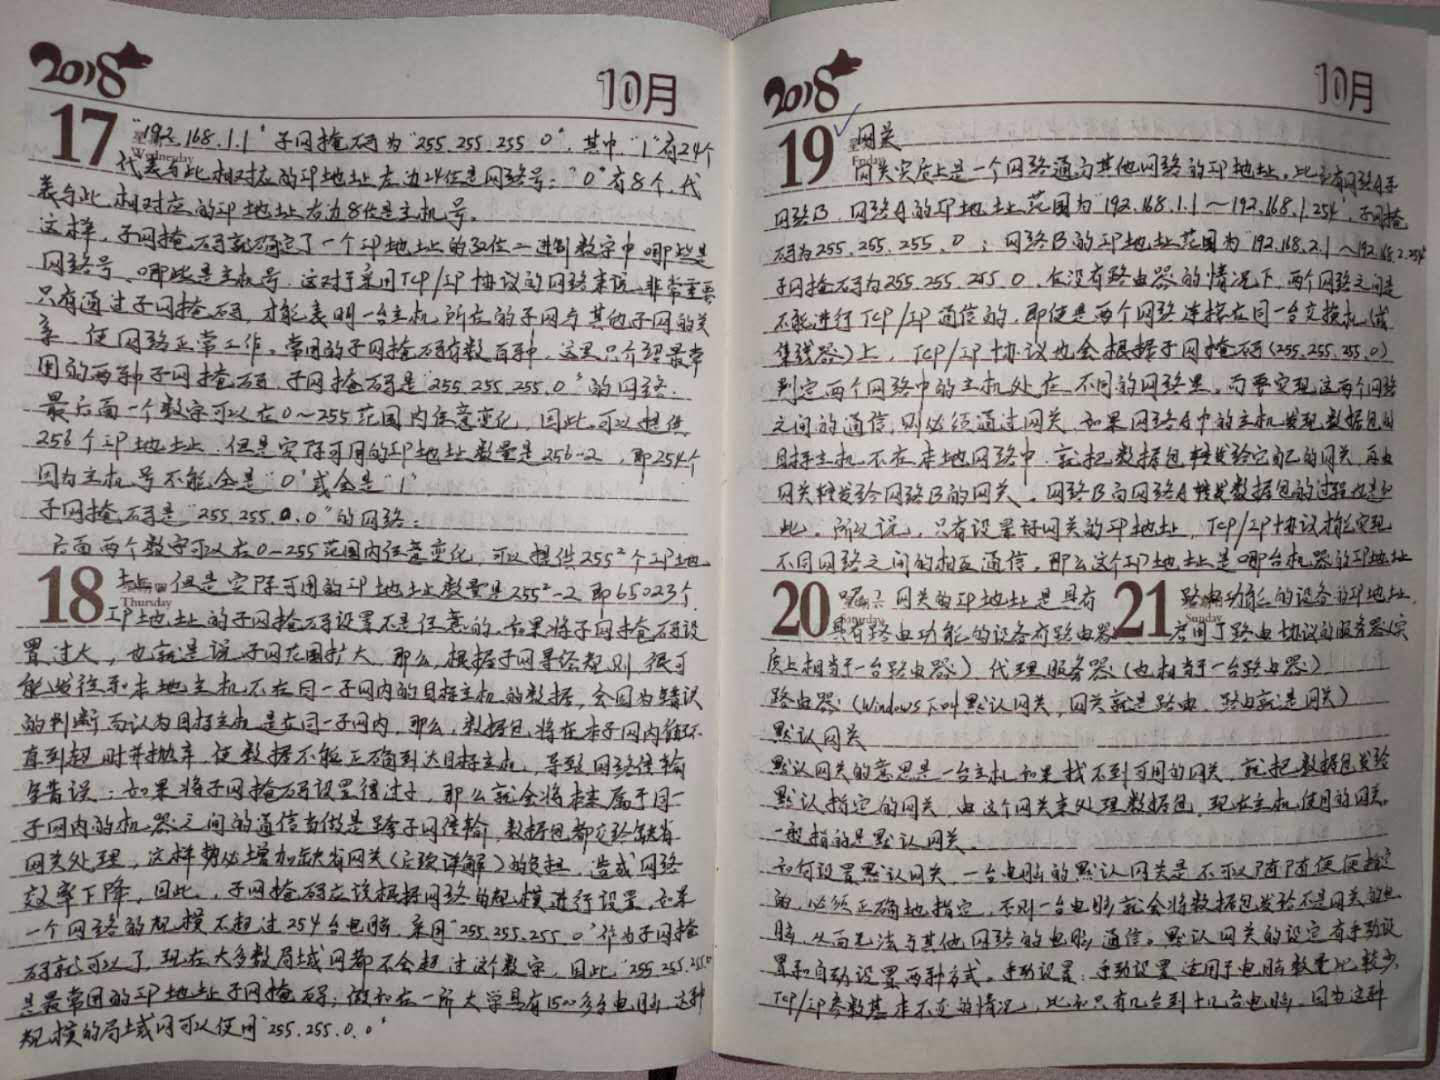 2018
10月
17
星期三
Wednesday
"192.168.1.1"子网掩码为"255.255.255.0",其中,"1"有24个
代表与此相对应的IP地址左边24位是网络号;"0"有8个,代
表与此相对应的IP地址右边8位是主机号。
这样,子网掩码就确定了一个IP地址的32位二进制数字中哪些是
网络号、哪些是主机号,这对于采用TCP/IP协议的网络来说非常重要
只有通过子网掩码,才能表明一台主机所在的子网与其他子网的关
系,使网络正常工作。常用的子网掩码有数百种,这里只介绍最常
用的两种子网掩码,子网掩码是"255.255.255.0"的网络:
最后面一个数字可以在0~255范围内任意变化,因此可以提供
256个IP地址,但是实际可用的IP地址数量是256-2,即254个
因为主机号不能全是"0"或全是"1"
子网掩码是"255.255.0.0"的网络:
后面两个数字可以在0-255范围内任意变化,可以提供255²个IP地
18
Thursday
址,但是实际可用的IP地址数量是255²-2即65023个
IP地址的子网掩码设置不是任意的,如果将子网掩码设
置过大,也就是说子网范围扩大,那么,根据子网寻径规则,很可
能发往和本地主机不在同一子网内的目标主机的数据,会因为错误
的判断而认为目标主机是在同一子网内,那么,数据包将在本子网内循环
直到超时并抛弃,使数据不能正确到达目标主机,导致网络传输
错误;如果将子网掩码设置得过小,那么就会将本来属于同一
子网内的机器之间的通信当做是跨子网传输,数据包都交给缺省
网关处理,这样势必增加缺省网关(后续详解)的负担,造成网络
效率下降,因此,子网掩码应该根据网络的规模进行设置,如果
一个网络的规模不超过254台电脑,采用"255.255.255.0"作为子网掩
码就可以了,现在大多数局域网都不会超过这个数字,因此"255.255.255.0"
是最常用的IP地址子网掩码;假如在一所大学具有1500多台电脑,这种
规模的局域网可以使用"255.255.0.0"
2018
10月
19
Friday
网关
网关实质上是一个网络通向其他网络的IP地址。比如有网络A和
网络B,网络A的IP地址范围为"192.168.1.1~192.168.1.254",子网掩
码为255.255.255.0;网络B的IP地址范围为"192.168.2.1~192.168.2.254"
子网掩码为255.255.255.0。在没有路由器的情况下,两个网络之间是
不能进行TCP/IP通信的,即使是两个网络连接在同一台交换机(或
集线器)上,TCP/IP协议也会根据子网掩码(255.255.255.0)
判定两个网络中的主机处在不同的网络里。而要实现这两个网络
之间的通信,则必须通过网关,如果网络A中的主机发现数据包的
目标主机不在本地网络中,就把数据包转发给它自己的网关,再由
网关转发给网络B的网关,网络B向网络A转发数据包的过程也是如
此。所以说,只有设置好网关的IP地址,TCP/IP协议才能实现
不同网络之间的相互通信,那么这个IP地址是哪台机器的IP地址
20
Saturday
呢?网关的IP地址是具有
21
Sunday
路由功能的设备的IP地址,
具有路由功能的设备有路由器、
启用了路由协议的服务器(实
质上相当于一台路由器)代理服务器(也相当于一台路由器)
路由器:(Windows下叫默认网关,网关就是路由,路由就是网关)
默认网关
默认网关的意思是一台主机如果找不到可用的网关,就把数据包发给
默认指定的网关,由这个网关来处理数据包,现在主机使用的网关,
一般指的是默认网关。
如何设置默认网关,一台电脑的默认网关是不可以随随便便指定
的,必须正确地指定,否则一台电脑就会将数据包发给不是网关的电
脑,从而无法与其他网络的电脑通信。默认网关的设定有手动设
置和自动设置两种方式。手动设置:手动设置适用于电脑数量比较少
TCP/IP参数基本不变的情况,比如只有几台到十几台电脑,因为这种